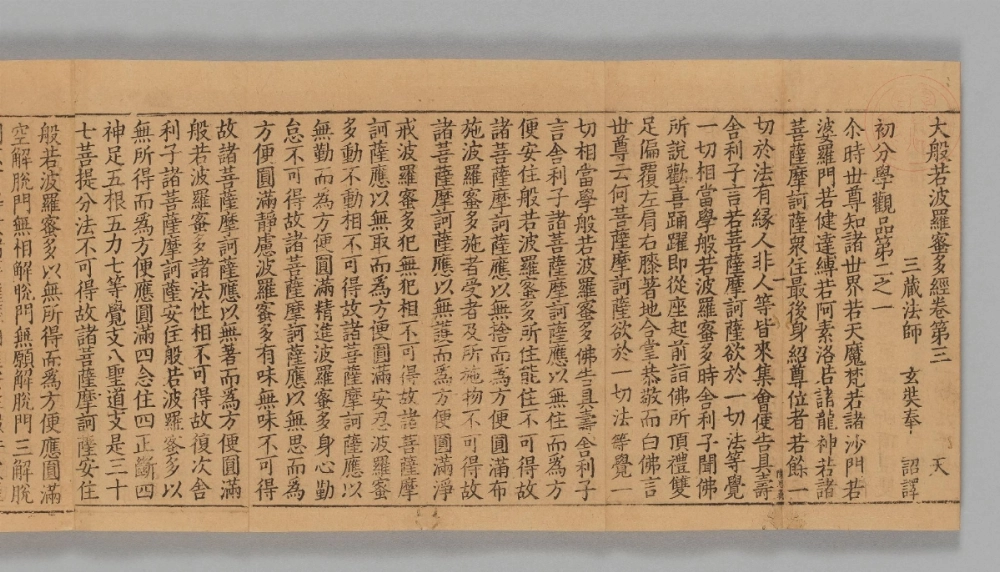 大般若波羅蜜多經卷第三　天
三藏法師　玄奘奉　詔譯
初分學觀品第二之一
尒時世尊知諸世界若天魔梵若諸沙門若
婆羅門若健達縛若阿素洛若諸龍神若諸
菩薩摩訶薩衆住最後身紹尊位者若餘一
切於法有緣人非人等皆來集會便告具壽
舍利子言若菩薩摩訶薩欲於一切法等覺
一切相當學般若波羅蜜多時舍利子聞佛
所說歡喜踊躍即從座起前詣佛所頂禮雙
足偏覆左肩右膝著地合掌恭敬而白佛言
世尊云何菩薩摩訶薩欲於一切法等覺一
切相當學般若波羅蜜多佛告具壽舍利子
言舍利子諸菩薩摩訶薩應以無住而爲方
便安住般若波羅蜜多所住能住不可得故
諸菩薩摩訶薩應以無捨而爲方便圓滿布
施波羅蜜多施者受者及所施物不可得故
諸菩薩摩訶薩應以無護而爲方便圓滿淨
戒波羅蜜多犯無犯相不可得故諸菩薩摩
訶薩應以無取而爲方便圓滿安忍波羅蜜
多動不動相不可得故諸菩薩摩訶薩應以
無勤而爲方便圓滿精進波羅蜜多身心勤
怠不可得故諸菩薩摩訶薩應以無思而爲
方便圓滿靜慮波羅蜜多有味無味不可得
故諸菩薩摩訶薩應以無著而爲方便圓滿
般若波羅蜜多諸法性相不可得故復次舍
利子諸菩薩摩訶薩安住般若波羅蜜多以
無所得而爲方便應圓滿四念住四正斷四
神足五根五力七等覺支八聖道支是三十
七菩提分法不可得故諸菩薩摩訶薩安住
般若波羅蜜多以無所得而爲方便應圓滿
空解脫門無相解脫門無願解脫門三解脫